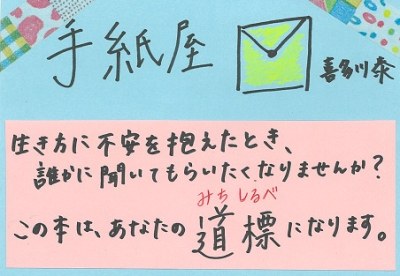 手紙屋
喜多川泰
生き方に不安を抱えたとき、
誰かに聞いてもらいたくなりませんか？
みちしるべ
この本は、あなたの道標になります。